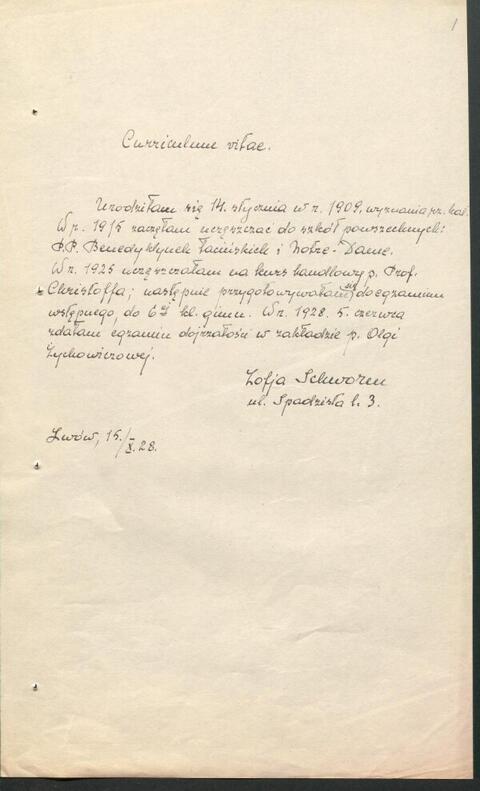 1
Curriculum vitae.
Urodziłam się 14. stycznia w r. 1909, wyznania rz. kat.
W r. 1915 zaczęłam uczęszczać do szkół powszechnych:
P.P. Benedyktynek łacińskich i Notre-Dame.
W r. 1925 uczęszczałam na kurs handlowy p. Prof.
Christoffa; następnie przygotowywałam się do egzaminu
wstępnego, do 6ej kl. gimn. W r. 1928. 5. czerwca
zdałam egzamin dojrzałości w zakładzie p. Olgi
Żychowiczowej.
Zofja Schworm
ul. Spadzista l. 3.
Lwów, 15./X.28.